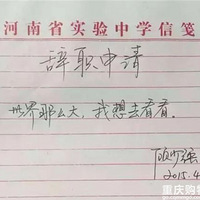 河南省实验中学信笺
辞职申请
世界那么大，我想去看看。
顾少强
2015.4
重庆购物